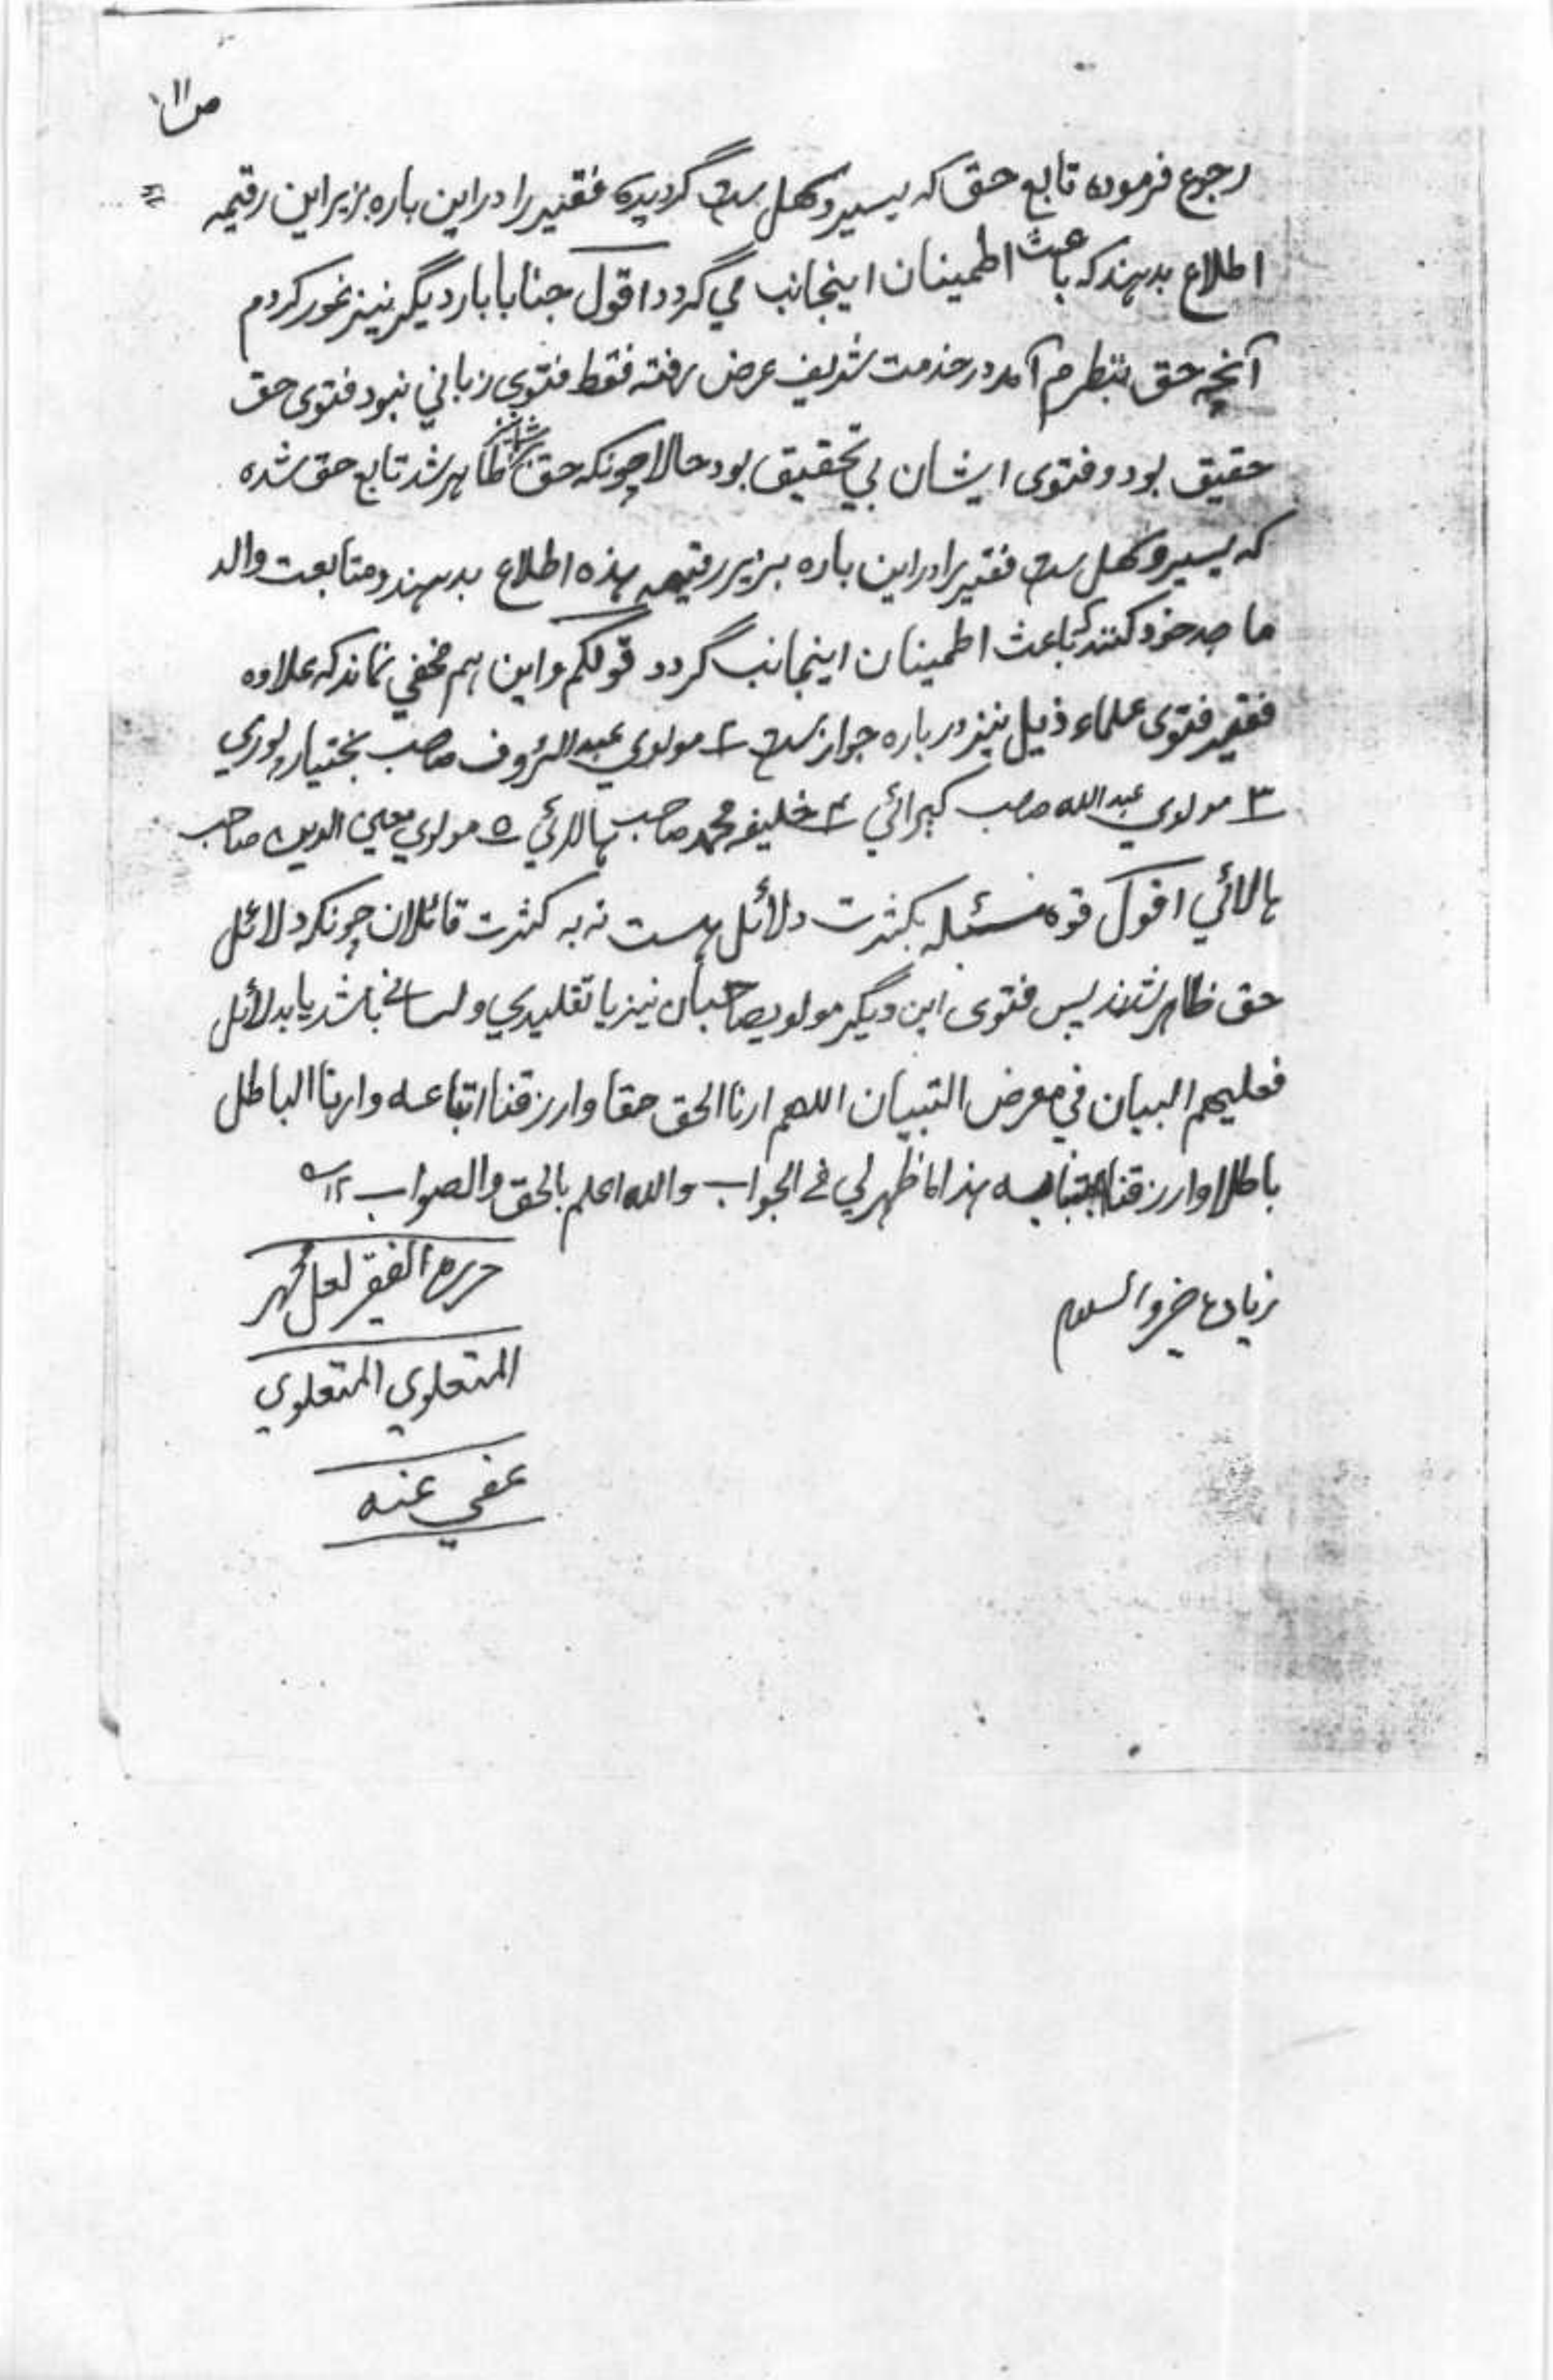 ص ١١
رجوع فرموده تابع حق که یسیر و سهل ست گردیده فقیر را در این باره بزیر این رقیمه
اطلاع بدهند که باعث اطمینان اینجانب می گردد اقول جنابا بار دیگر نیز غور کردم
آنچه حق بنظرم آمد در خدمت شریف عرض رفته فقط فتوی زبانی نبود فتوی حق
حقیق بود و فتوی ایشان بی تحقیق بود حالا چونکه حق ظاهر شد تابع حق شده
که یسیر و سهل ست فقیر را در این باره بزیر رقیمه هذه اطلاع بدهند و متابعت والد
ماجد خود کنند که باعث اطمینان اینجانب گردد قولکم و این هم مخفی نماند که علاوه
فقیر فتوی علماء ذیل نیز در باره جواز ست ٢ مولوي عبد الرؤف صاحب بختیارپوري
٣ مولوي عبد الله صاحب کبرائي ٤ خلیفه محمد صاحب هالائي ٥ مولوي محي الدین صاحب
هالائي اقول قوه مسئله بکثرت دلائل هست نه به کثرت قائلان چونکه دلائل
حق ظاهر شدند پس فتوی این دیگر مولویصاحبان نیز یا تقلیدي و لساني باشد یا بدلائل
فعلیهم البیان في معرض التبیان اللهم ارنا الحق حقا وارزقنا اتباعه وارنا الباطل
باطلا وارزقنا اجتنابه هذا ما ظهر لي في الجواب والله اعلم بالحق والصواب ١٢
زیاده خیر والسلام
حرره الفقیر لعل محمد
المتعلوي المتعلوي
عفي عنه